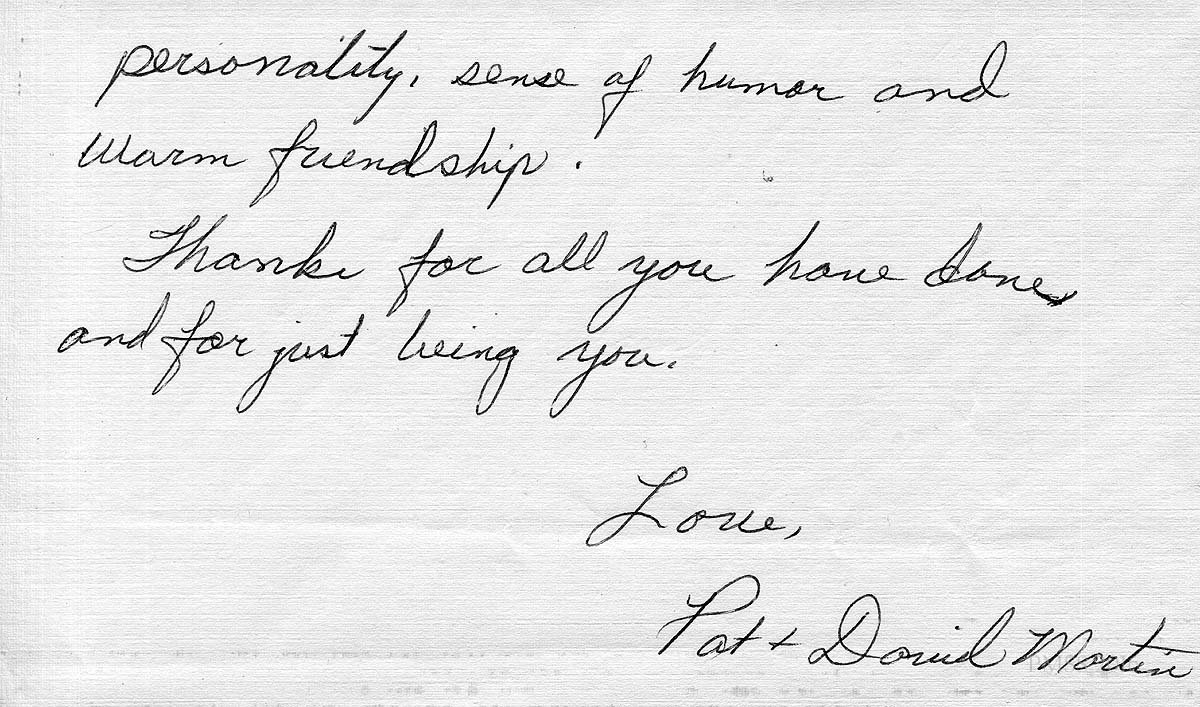 personality, sense of humor and
warm friendship.
Thanks for all you have done,
and for just being you.
Love,
Pat + David Martin